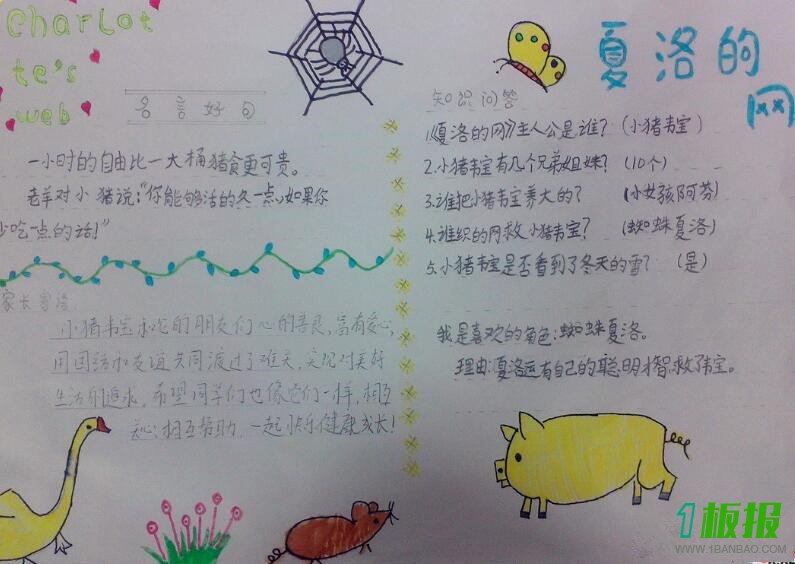 Charlot
te's
web
名言好句
一小时的自由比一大桶猪食更可贵。
老羊对小猪说:“你能够活的久一点,如果你
少吃一点的话!”
家长寄语
小猪韦宝和它的朋友们心的善良,富有爱心,
用团结和友谊共同渡过了难关,实现对美好
生活的追求,希望同学们也像它们一样,相互
关心,相互帮助,一起快乐健康成长!
夏洛的
网
知识问答
1.《夏洛的网》主人公是谁?(小猪韦宝)
2.小猪韦宝有几个兄弟姐妹?(10个)
3.谁把小猪韦宝养大的?(小女孩阿芬)
4.谁织的网救小猪韦宝?(蜘蛛夏洛)
5.小猪韦宝是否看到了冬天的雪?(是)
我是喜欢的角色:蜘蛛夏洛。
理由:夏洛运有自己的聪明才智救了韦宝。
1板报
WWW.1BANBAO.COM